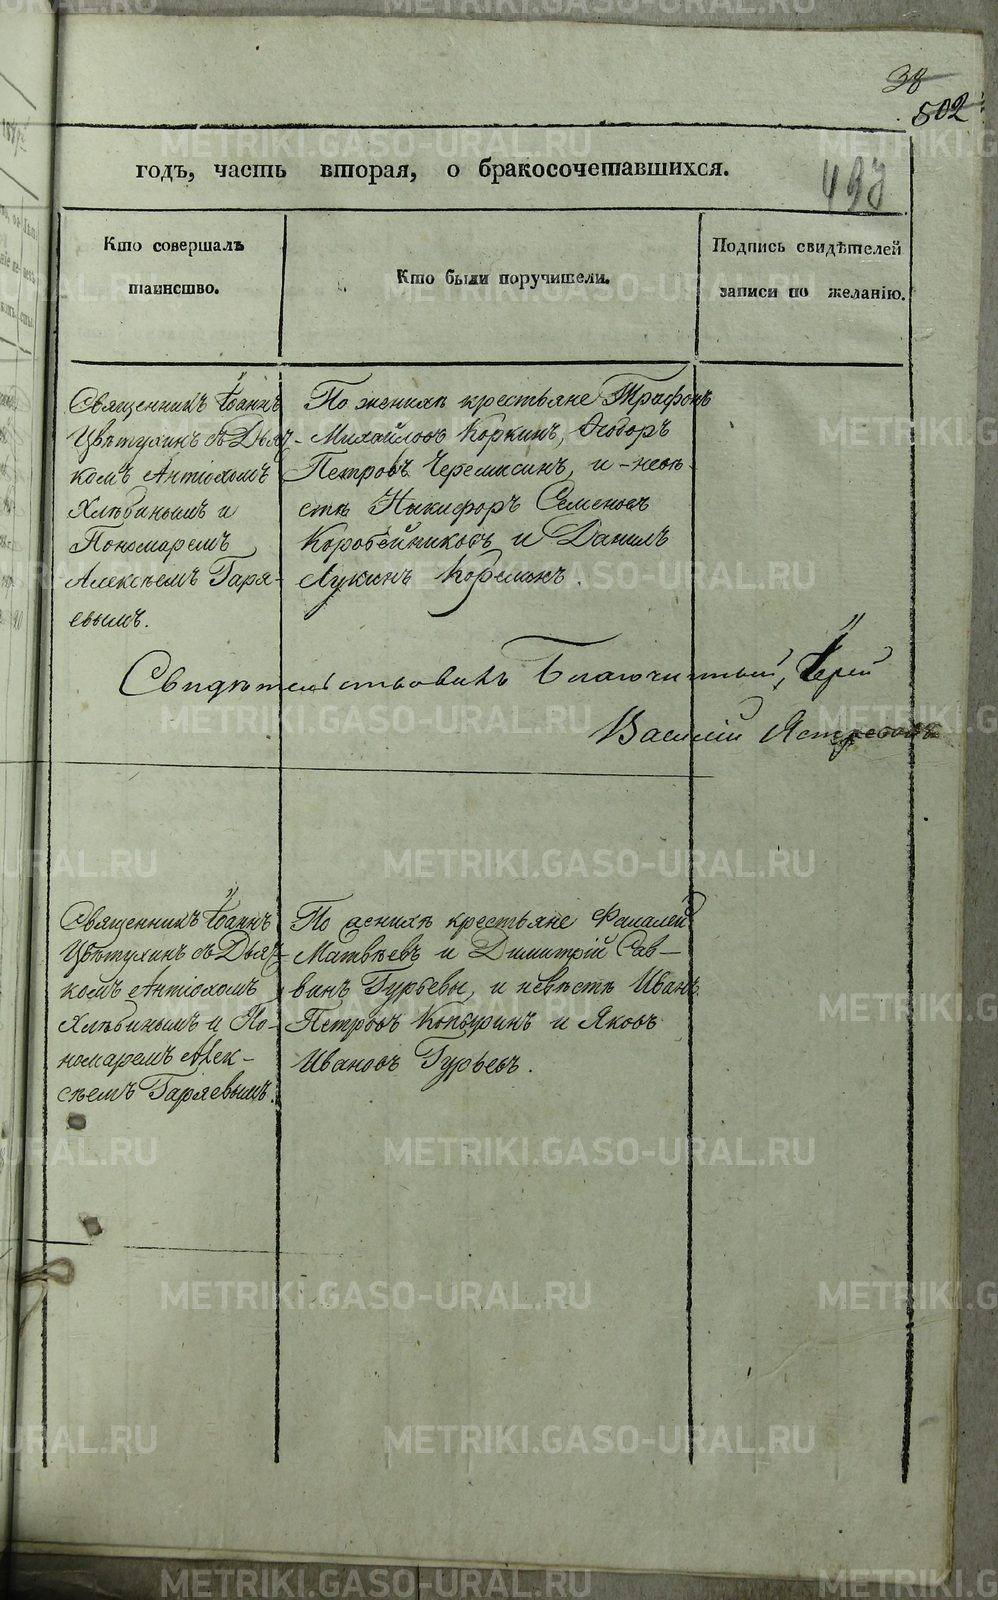 38
502
493
годъ, часть вторая, о бракосочетавшихся.
Кто совершалъ таинство.
Кто были поручители.
Подпись свидѣтелей записи по желанію.
Священникъ Іоаннъ
Цвѣтухинъ съ Дьяч-
комъ Антіохомъ
Хлѣбинымъ и
Пономаремъ
Алексѣемъ Гаря-
евымъ.
По женихѣ крестьяне Трифонъ
Михайловъ Коркинъ, Ѳеодоръ
Петровъ Черемисинъ, и невѣ-
стѣ Никифоръ Семеновъ
Коробейниковъ и Данилъ
Лукинъ Корелинъ.
Свидѣтельствовалъ Благочинный, Іерей
Василій Ястребовъ
Священникъ Іоаннъ
Цвѣтухинъ съ Дьяч-
комъ Антіохомъ
Хлѣбинымъ и По-
номаремъ Алек-
сѣемъ Гаряевымъ.
По женихѣ крестьяне Фалалей
Матвѣевъ и Димитрій Сав-
винъ Гурьевы, и невѣстѣ Иванъ
Петровъ и Яковъ
Ивановъ Гурьевъ.
METRIKI.GASO-URAL.RU